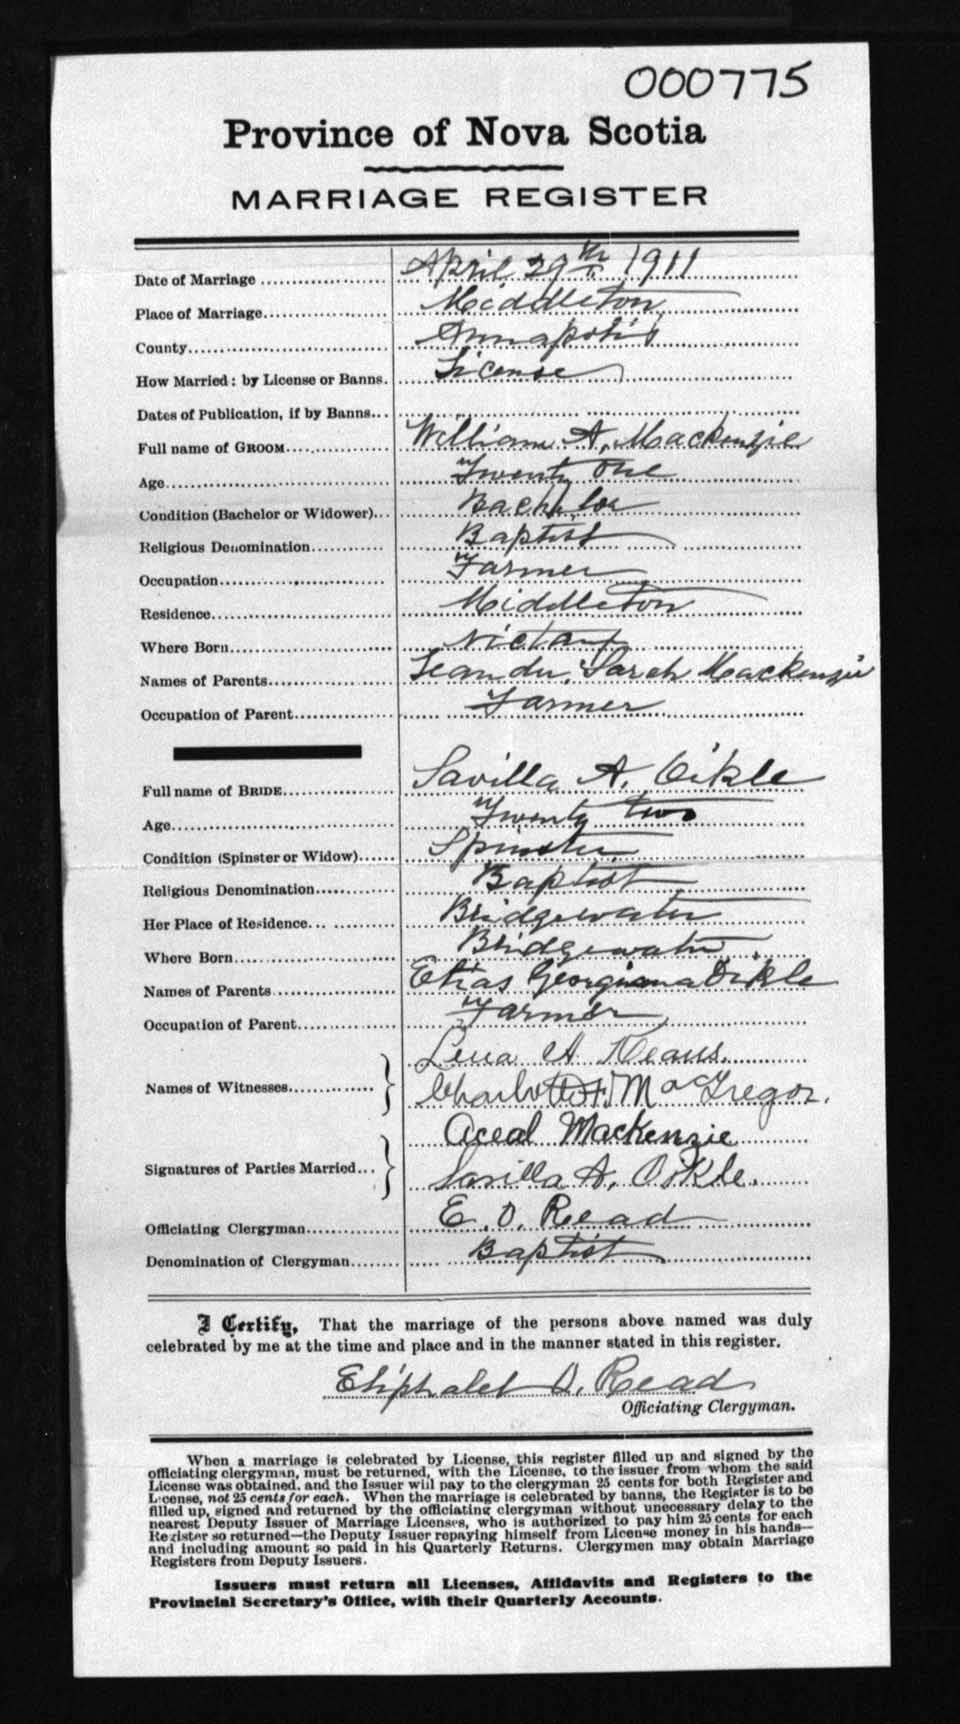 000775
Province of Nova Scotia
MARRIAGE REGISTER
Date of Marriage April 29th 1911
Place of Marriage Middleton
County Annapolis
How Married: by License or Banns. License
Dates of Publication, if by Banns
Full name of GROOM William A. Mackenzie
Age Twenty One
Condition (Bachelor or Widower) Bachelor
Religious Denomination Baptist
Occupation Farmer
Residence Middleton
Where Born Nictaux
Names of Parents Leander, Sarah Mackenzie
Occupation of Parent Farmer
Full name of BRIDE Savilla A. Oikle
Age Twenty two
Condition (Spinster or Widow) Spinster
Religious Denomination Baptist
Her Place of Residence Bridgewater
Where Born Bridgewater
Names of Parents Elias Georgianna Oikle
Occupation of Parent Farmer
Lena A
Names of Witnesses Charlotte H. MacGregor.
Aceal Mackenzie
Signatures of Parties Married Savilla A. Oikle.
Officiating Clergyman E. D. Read
Denomination of Clergyman Baptist
I Certify, That the marriage of the persons above named was duly
celebrated by me at the time and place and in the manner stated in this register.
Eliphalet D. Read
Officiating Clergyman.
When a marriage is celebrated by License, this register filled up and signed by the
officiating clergyman, must be returned, with the License, to the issuer from whom the said
License was obtained, and the Issuer will pay to the clergyman 25 cents for both Register and
License, not 25 cents for each. When the marriage is celebrated by banns, the Register is to be
filled up, signed and returned by the officiating clergyman without unnecessary delay to the
nearest Deputy Issuer of Marriage Licenses, who is authorized to pay him 25 cents for each
Register so returned—the Deputy Issuer repaying himself from License money in his hands—
and including amount so paid in his Quarterly Returns. Clergymen may obtain Marriage
Registers from Deputy Issuers.
Issuers must return all Licenses, Affidavits and Registers to the
Provincial Secretary's Office, with their Quarterly Accounts.